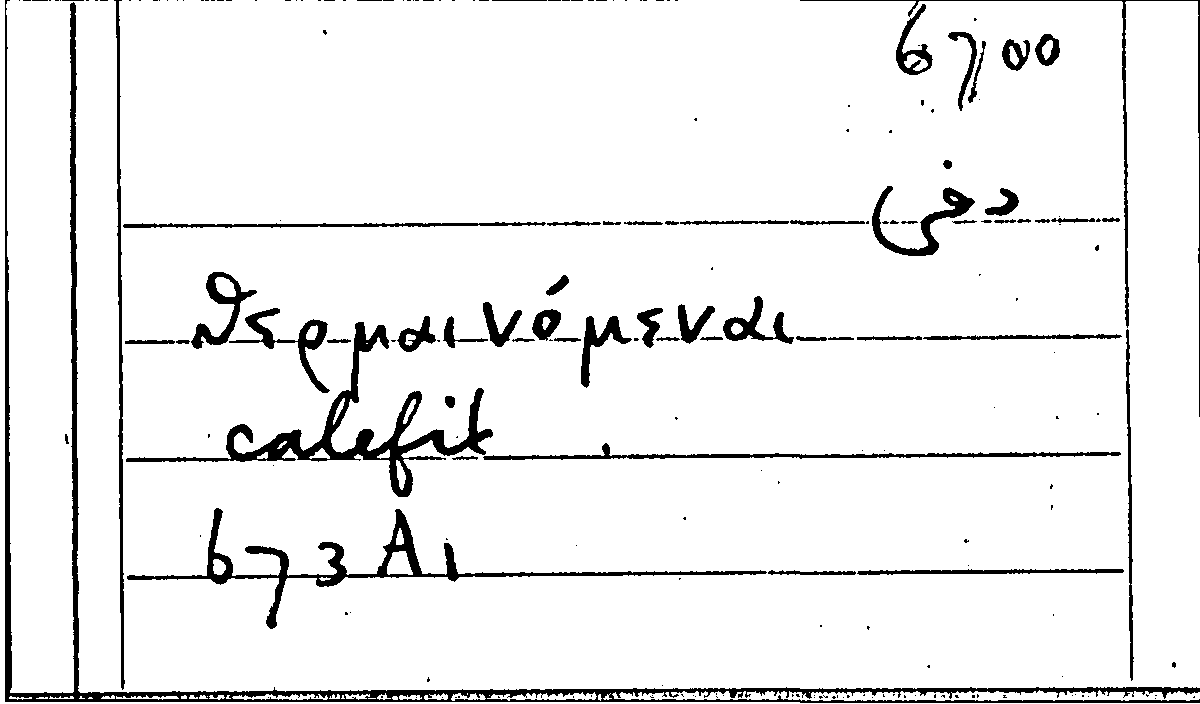 6700
دفى
θερμαινόμεναι
calefit.
673A1